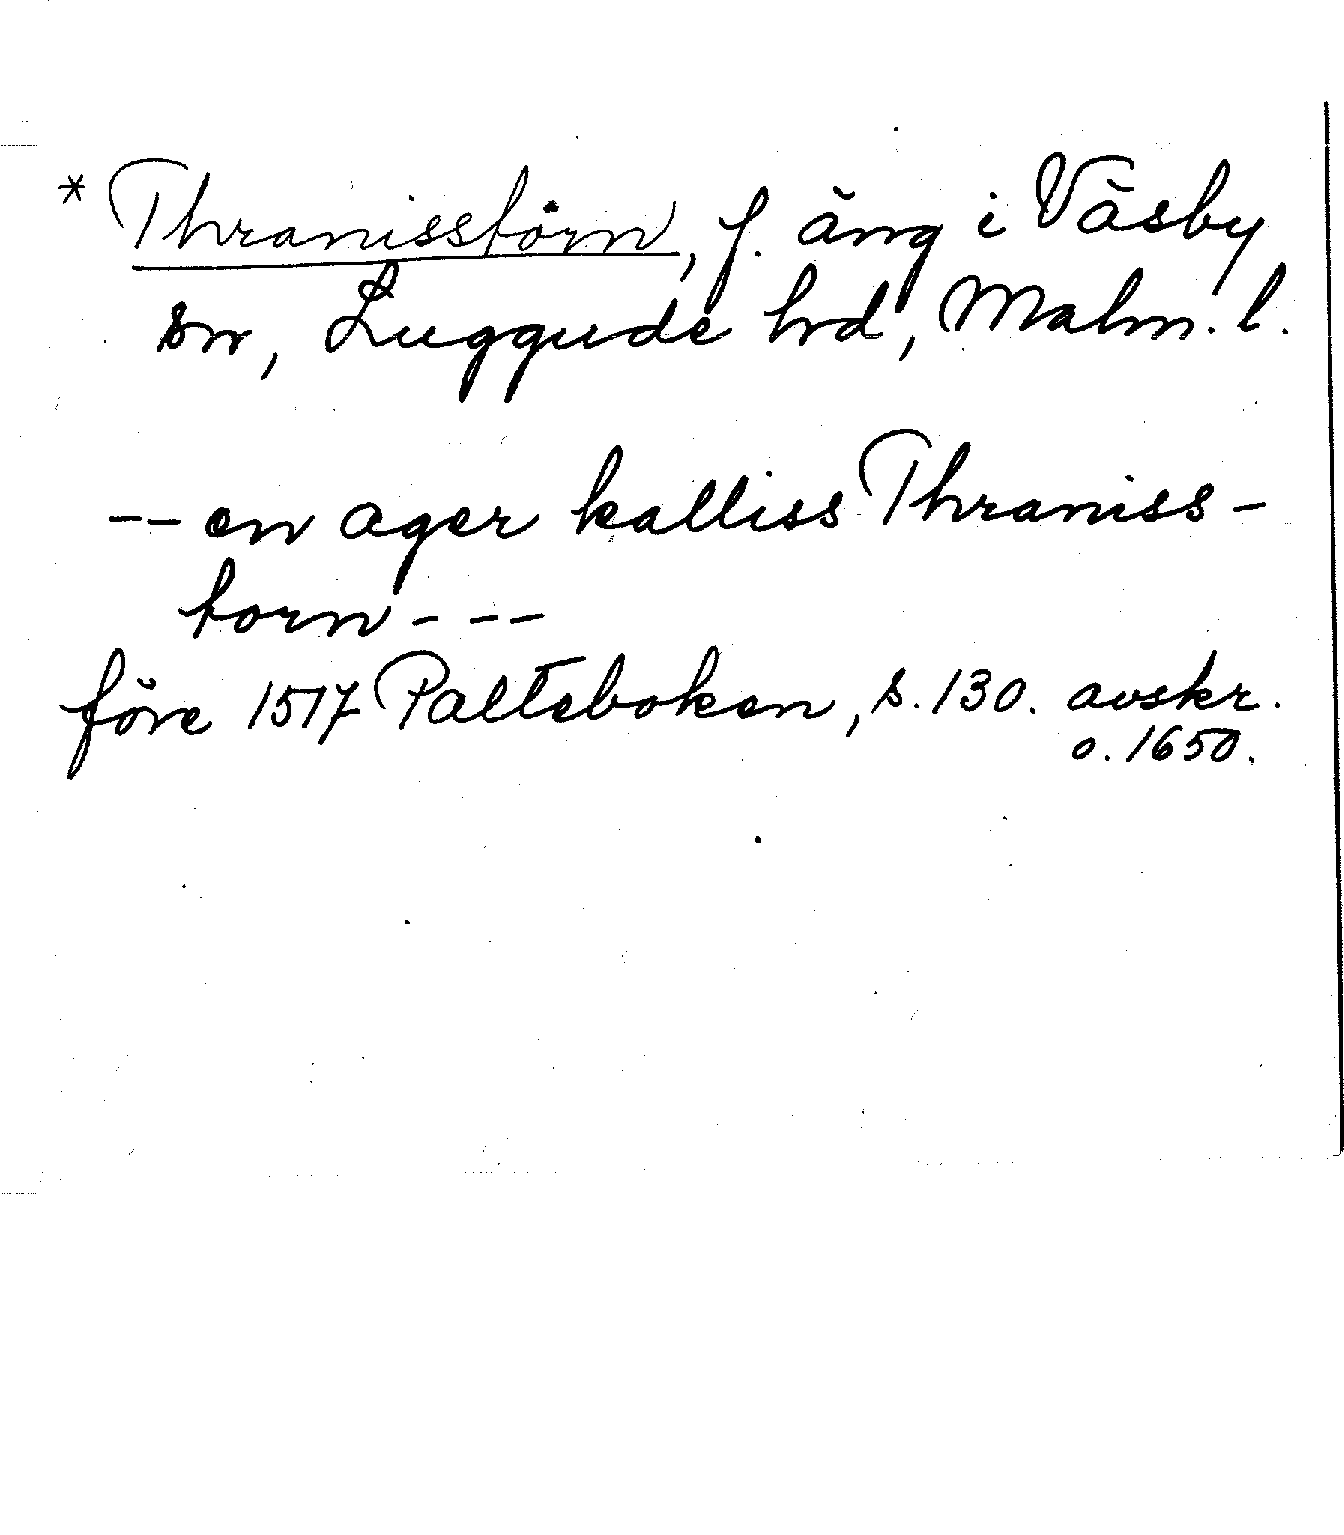 * Thranisstörn, f. äng i Väsby
sn, Luggude hrd, Malm. l.
-- en ager kalliss Thraniss-
torn - --
före 1517 Palteboken, s. 130. avskr.
o. 1650.